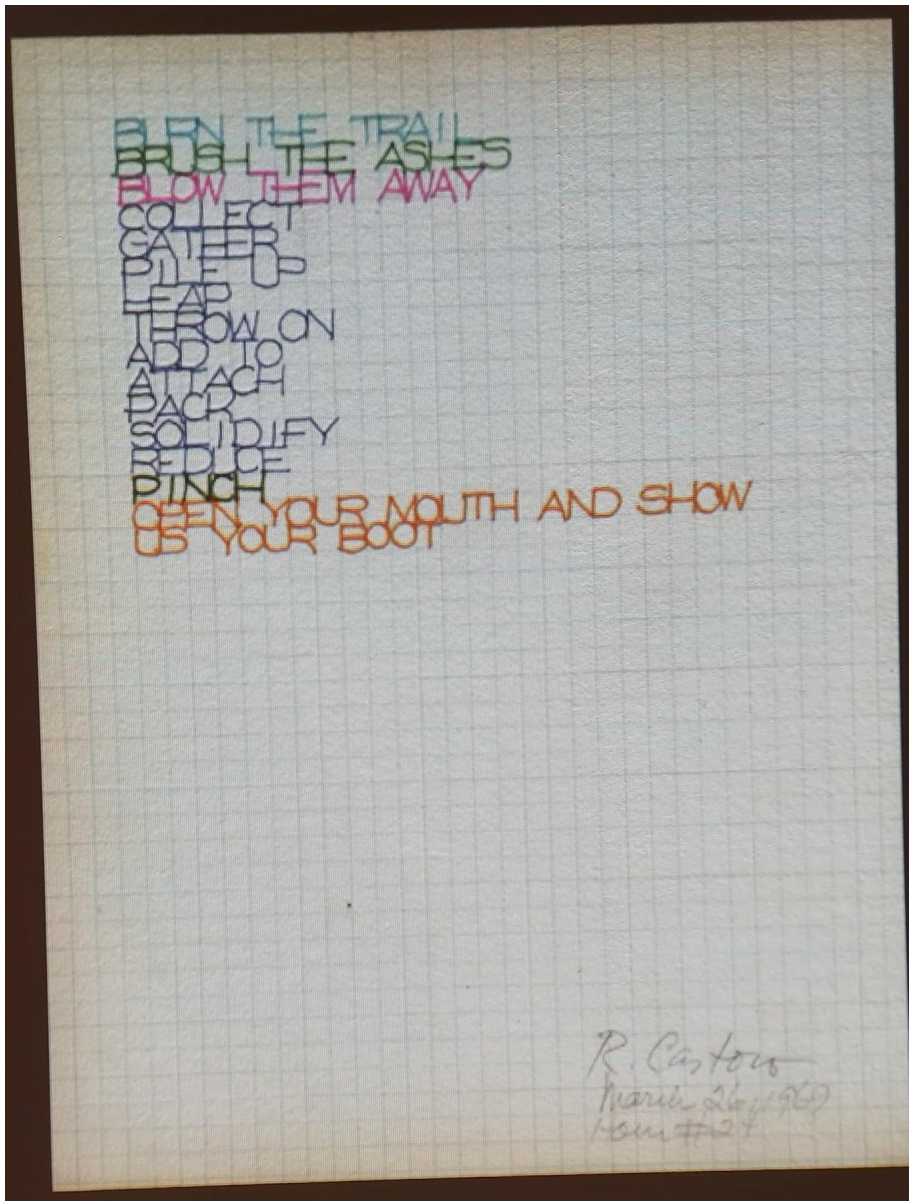 BURN THE TRAIL
BRUSH THE ASHES
BLOW THEM AWAY
COLLECT
GATHER
PILE UP
HEAP
THROW ON
ADD TO
ATTACH
PACK
SOLIDIFY
REDUCE
PINCH
OPEN YOUR MOUTH AND SHOW
US YOUR BOOT
R. Castoro
March 26, 1969